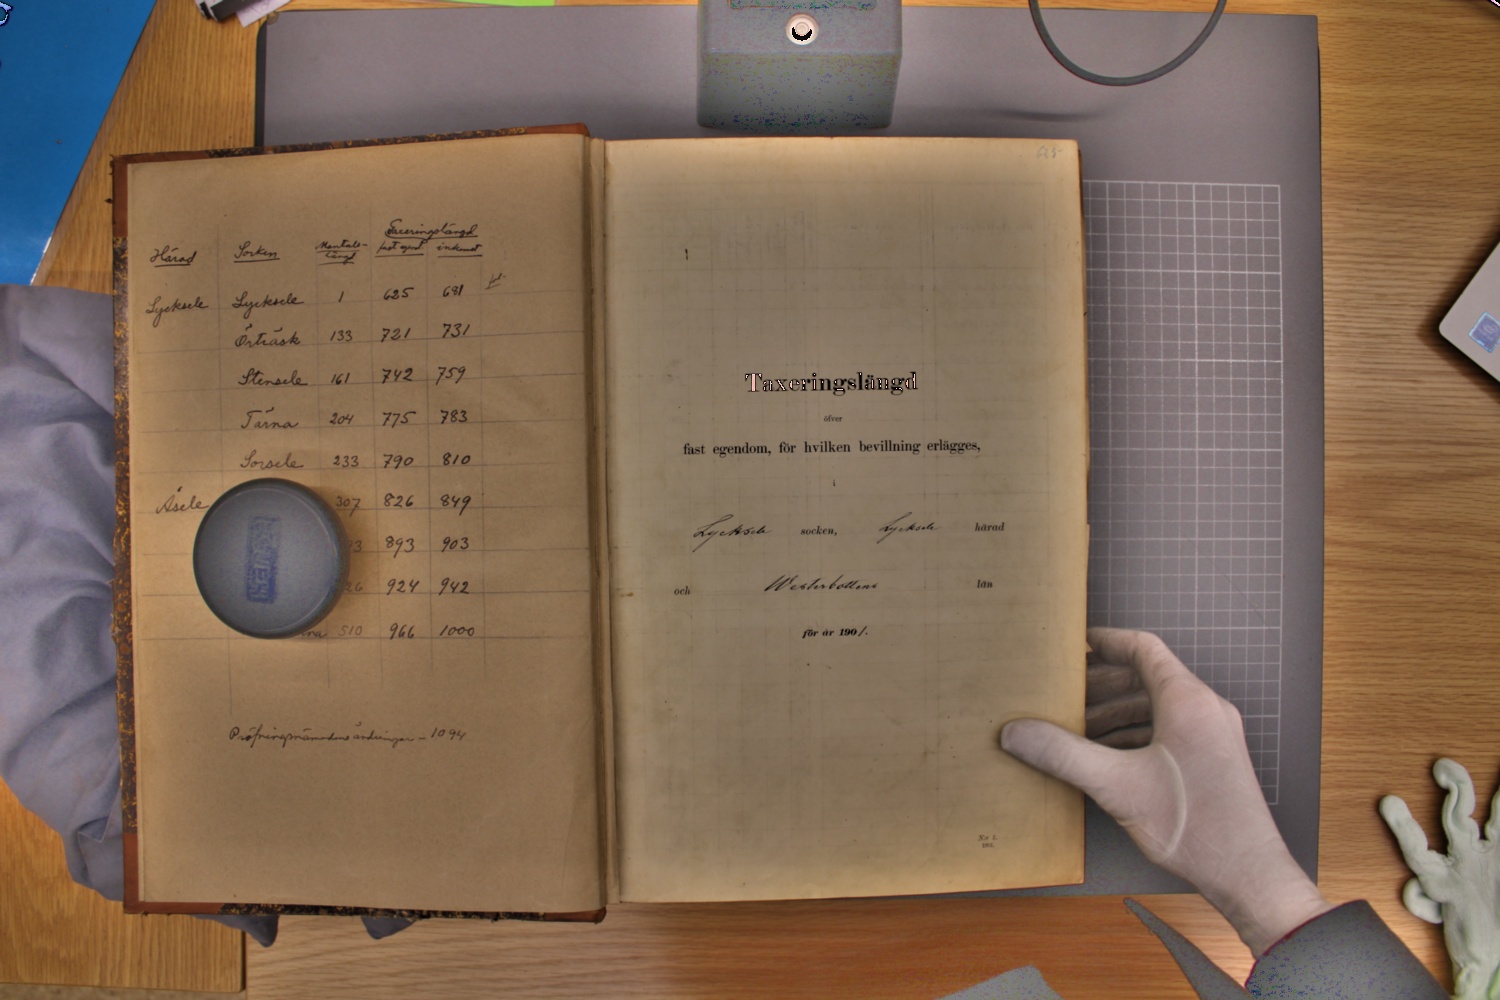 Taxeringslängd
Härad Socken Mantals-längd fast egend inkomst
Lycksele Lycksele 1 625 681
Örträsk 133 721 731
Stensele 161 742 759
Tärna 204 775 783
Sorsele 233 790 810
Åsele 307 826 849
893 903
924 942
510 966 1000
Pröfningsnämndens ändringar – 1094
625
Taxeringslängd
öfver
fast egendom, för hvilken bevillning erlägges,
i
Lycksele socken, Lycksele härad
och Westerbottens län
för år 1901.